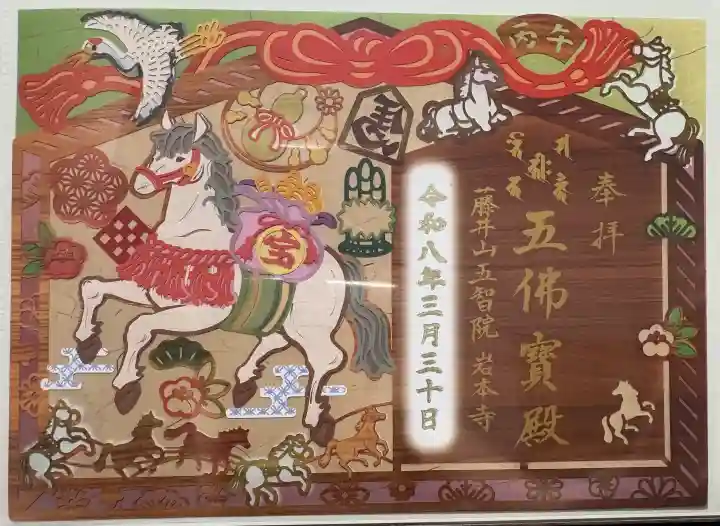 丙午
奉拝
五佛寶殿
藤井山五智院 岩本寺
令和八年三月三十日
馬
宝